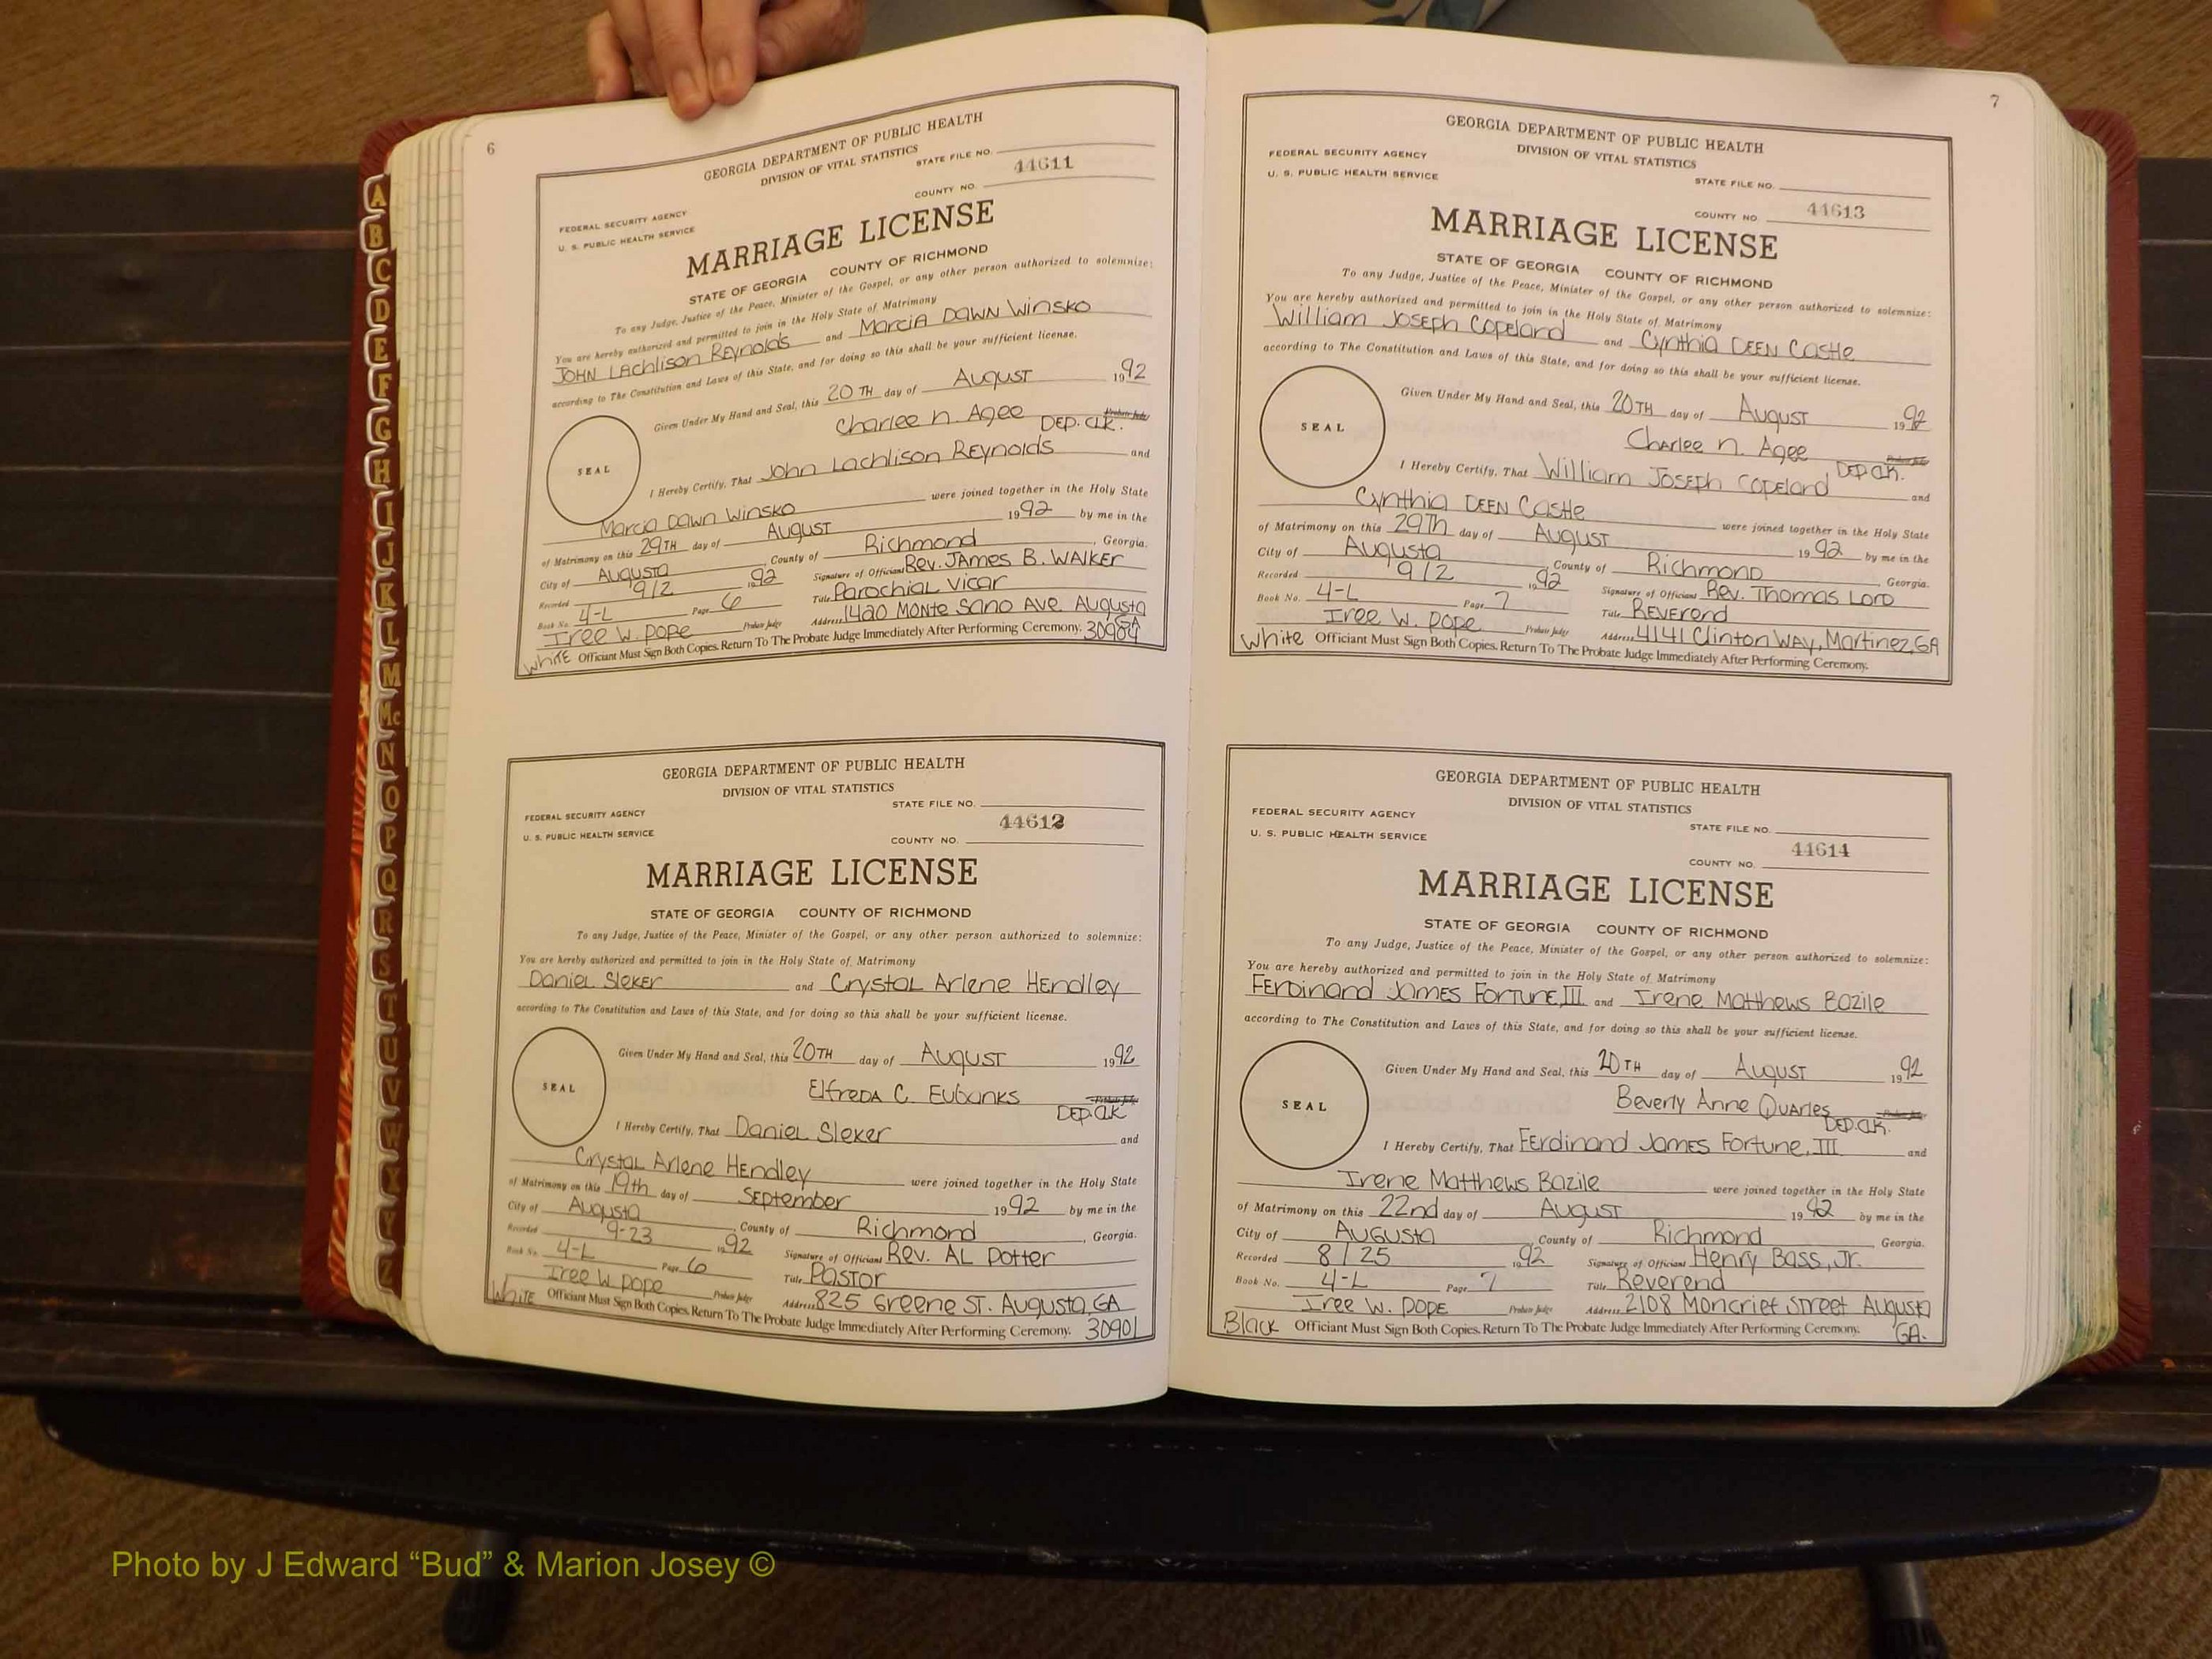 6
GEORGIA DEPARTMENT OF PUBLIC HEALTH
DIVISION OF VITAL STATISTICS
STATE FILE NO.
44611
COUNTY NO.
FEDERAL SECURITY AGENCY
U. S. PUBLIC HEALTH SERVICE
MARRIAGE LICENSE
STATE OF GEORGIA COUNTY OF RICHMOND
To any Judge, Justice of the Peace, Minister of the Gospel, or any other person authorized to solemnize:
You are hereby authorized and permitted to join in the Holy State of Matrimony
JOHN LAchlison REynolds and MarciA DAWN Winsko
according to The Constitution and Laws of this State, and for doing so this shall be your sufficient license.
Given Under My Hand and Seal, this 20TH day of AUGUST 1992
Charlee n. Agee Probate Judge
DEP. CLK.
SEAL
I Hereby Certify, That John Lachlison REynolds and
Marcia Dawn Winsko were joined together in the Holy State
of Matrimony on this 29TH day of August 1992 by me in the
City of Augusta, County of Richmond, Georgia.
Recorded 9/2 1992 Signature of Officiant Rev. JAMES B. WALKER
Book No. 4-L Page 6 Title Parochial Vicar
Iree W. Pope Probate Judge Address 1420 MONte Sano Ave. Augusta
GA
White Officiant Must Sign Both Copies. Return To The Probate Judge Immediately After Performing Ceremony. 30904
GEORGIA DEPARTMENT OF PUBLIC HEALTH
DIVISION OF VITAL STATISTICS
STATE FILE NO.
FEDERAL SECURITY AGENCY
44612
U. S. PUBLIC HEALTH SERVICE
COUNTY NO.
MARRIAGE LICENSE
STATE OF GEORGIA COUNTY OF RICHMOND
To any Judge, Justice of the Peace, Minister of the Gospel, or any other person authorized to solemnize:
You are hereby authorized and permitted to join in the Holy State of Matrimony
Daniel Sleker and Crystal Arlene Hendley
according to The Constitution and Laws of this State, and for doing so this shall be your sufficient license.
Given Under My Hand and Seal, this 20TH day of August 1992
Elfreda C. Eubanks Probate Judge
DEP. CLK
SEAL
I Hereby Certify, That Daniel Sleker and
Crystal Arlene Hendley were joined together in the Holy State
of Matrimony on this 19th day of September 1992 by me in the
City of Augusta, County of Richmond, Georgia.
Recorded 9-23 1992 Signature of Officiant Rev. AL Potter
Book No. 4-L Page 6 Title Pastor
Iree W. Pope Probate Judge Address 825 Greene ST. Augusta, GA
White Officiant Must Sign Both Copies. Return To The Probate Judge Immediately After Performing Ceremony. 30901
7
GEORGIA DEPARTMENT OF PUBLIC HEALTH
DIVISION OF VITAL STATISTICS
FEDERAL SECURITY AGENCY
U. S. PUBLIC HEALTH SERVICE
STATE FILE NO.
COUNTY NO. 44613
MARRIAGE LICENSE
STATE OF GEORGIA COUNTY OF RICHMOND
To any Judge, Justice of the Peace, Minister of the Gospel, or any other person authorized to solemnize:
You are hereby authorized and permitted to join in the Holy State of Matrimony
William Joseph Copeland and Cynthia DEEN Castle
according to The Constitution and Laws of this State, and for doing so this shall be your sufficient license.
Given Under My Hand and Seal, this 20TH day of August 1992
Charlee n. Agee Probate Judge
DEP. CLK.
SEAL
I Hereby Certify, That William Joseph Copeland and
Cynthia DEEN Castle were joined together in the Holy State
of Matrimony on this 29Th day of August 1992 by me in the
City of Augusta, County of Richmond, Georgia.
Recorded 9/2 1992 Signature of Officiant Rev. Thomas Lord
Book No. 4-L Page 7 Title Reverend
Iree W. Pope Probate Judge Address 4141 Clinton Way, Martinez, GA
White Officiant Must Sign Both Copies. Return To The Probate Judge Immediately After Performing Ceremony.
GEORGIA DEPARTMENT OF PUBLIC HEALTH
DIVISION OF VITAL STATISTICS
FEDERAL SECURITY AGENCY
U. S. PUBLIC HEALTH SERVICE
STATE FILE NO.
44614
COUNTY NO.
MARRIAGE LICENSE
STATE OF GEORGIA COUNTY OF RICHMOND
To any Judge, Justice of the Peace, Minister of the Gospel, or any other person authorized to solemnize:
You are hereby authorized and permitted to join in the Holy State of Matrimony
Ferdinand James Fortune, III and Irene Matthews Bozile
according to The Constitution and Laws of this State, and for doing so this shall be your sufficient license.
Given Under My Hand and Seal, this 20TH day of August 1992
Beverly Anne Quarles Probate Judge
DEP. CLK.
SEAL
I Hereby Certify, That Ferdinand James Fortune, III and
Irene Matthews Bozile were joined together in the Holy State
of Matrimony on this 22nd day of August 1992 by me in the
City of Augusta County of Richmond Georgia.
Recorded 8/25 1992 Signature of Officiant Henry Bass, Jr.
Book No. 4-L Page 7 Title Reverend
Iree W. Pope Probate Judge Address 2108 Moncrief Street Augusta
Black Officiant Must Sign Both Copies. Return To The Probate Judge Immediately After Performing Ceremony. GA.
A
B
C
D
E
F
G
H
I
J
K
L
M
Mc
N
O
P
Q
R
S
T
U
V
W
X
Y
Z
Photo by J Edward “Bud” & Marion Josey ©